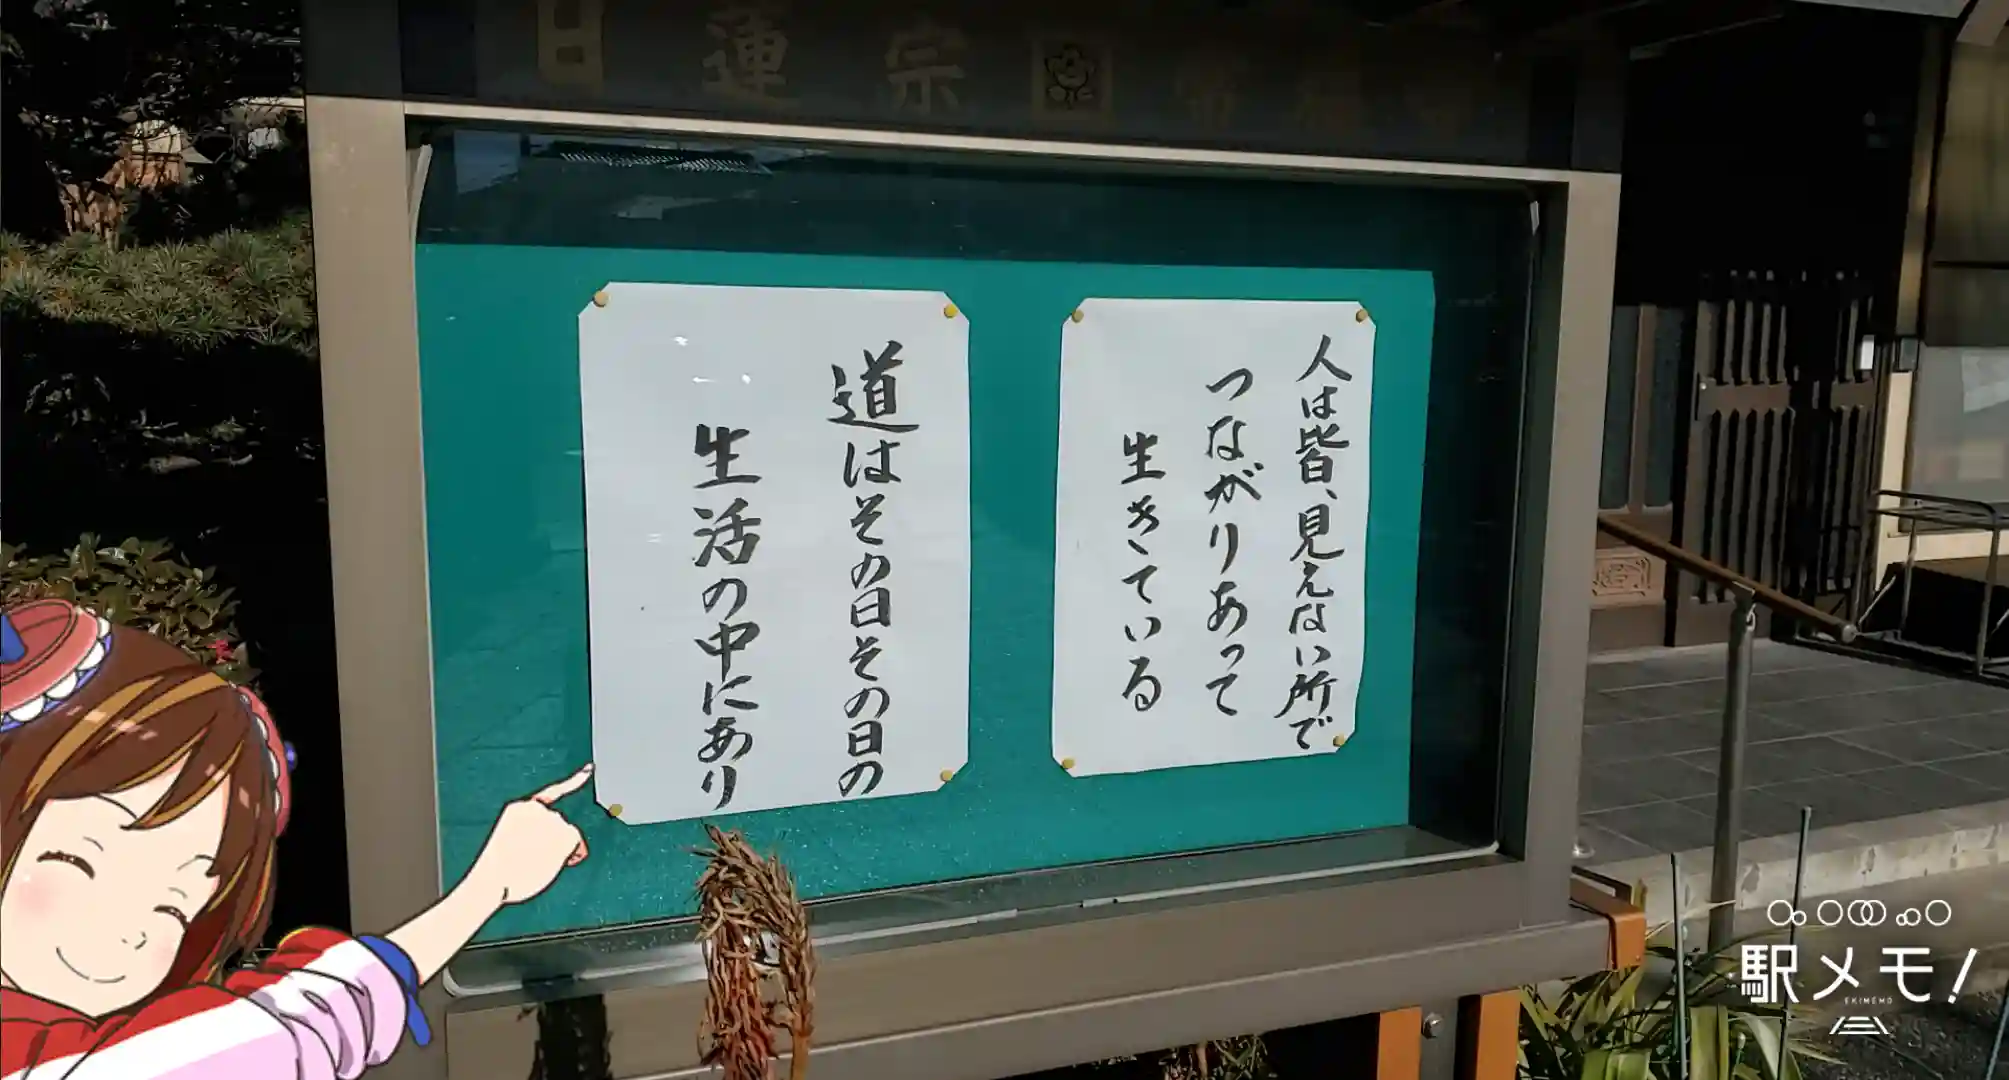 日蓮宗
人は皆、見えない所で
つながりあって
生きている
道はその日その日の
生活の中にあり
駅メモ!
EKIMEMO